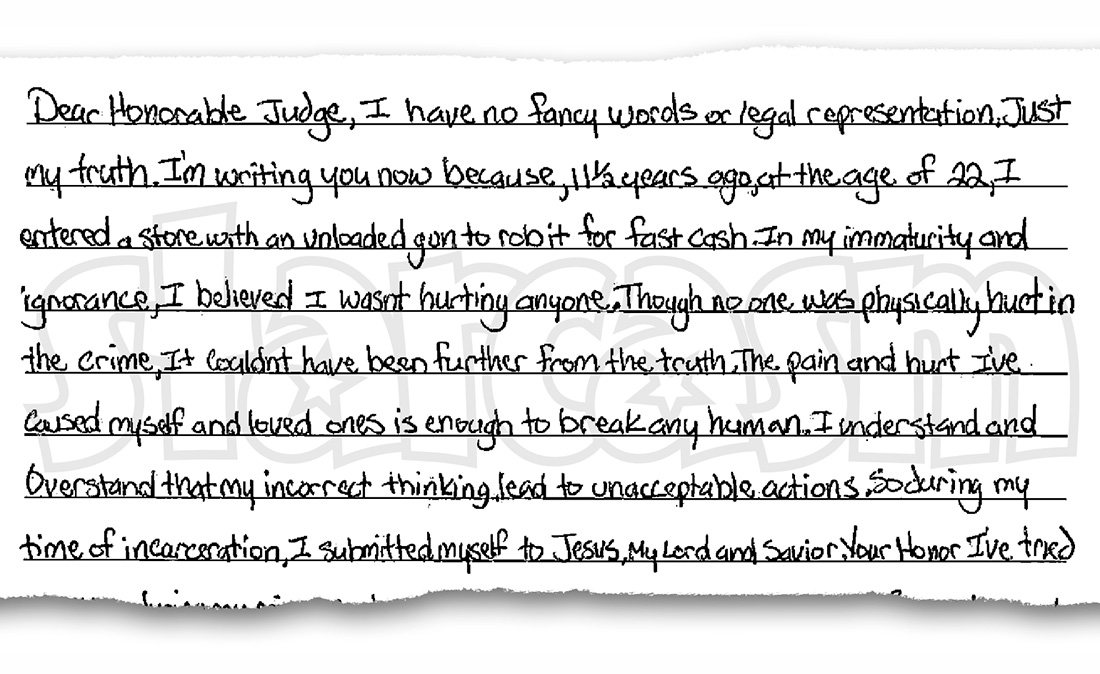 Dear Honorable Judge, I have no fancy words or legal representation. Just
my truth. I'm writing you now because, 11½ years ago, at the age of 22, I
entered a store with an unloaded gun to rob it for fast cash. In my immaturity and
ignorance, I believed I wasnt hurting anyone. Though no one was physically hurt in
the crime, It couldnt have been further from the truth. The pain and hurt I've
caused myself and loved ones is enough to break any human. I understand and
Overstand that my incorrect thinking, lead to unacceptable actions. So during my
time of incarceration, I submitted myself to Jesus, My Lord and Savior. Your Honor I've tried
starcasm